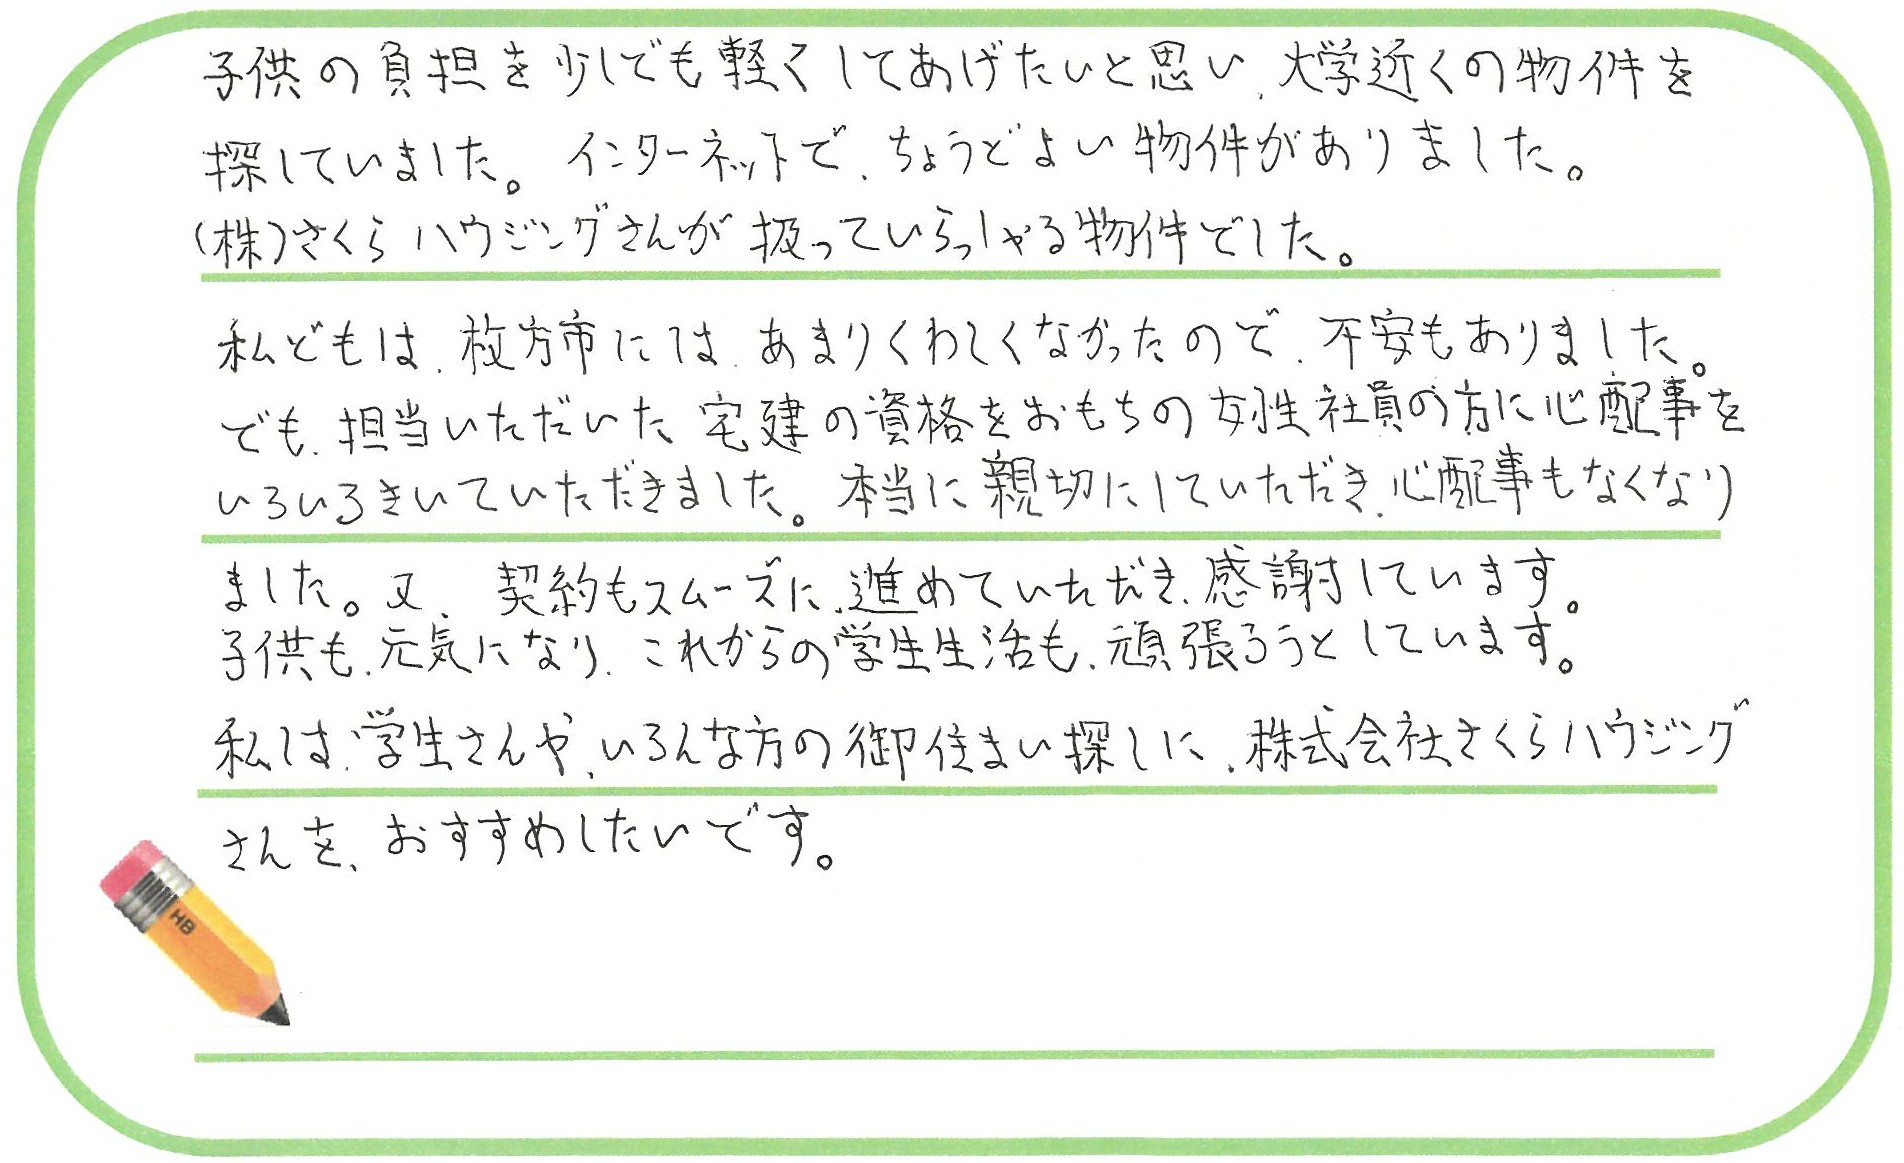 子供の負担を少しでも軽くしてあげたいと思い、大学近くの物件を
探していました。インターネットで、ちょうどよい物件がありました。
(株)さくらハウジングさんが扱っていらっしゃる物件でした。
私どもは、枚方市には、あまりくわしくなかったので、不安もありました。
でも、担当いただいた、宅建の資格をおもちの女性社員の方に心配事を
いろいろきいていただきました。本当に親切にしていただき、心配事もなくなり
ました。又、契約もスムーズに、進めていただき、感謝しています。
子供も、元気になり、これからの学生生活も、頑張ろうとしています。
私は、学生さんや、いろんな方の御住まい探しに、株式会社さくらハウジング
さんを、おすすめしたいです。
HB